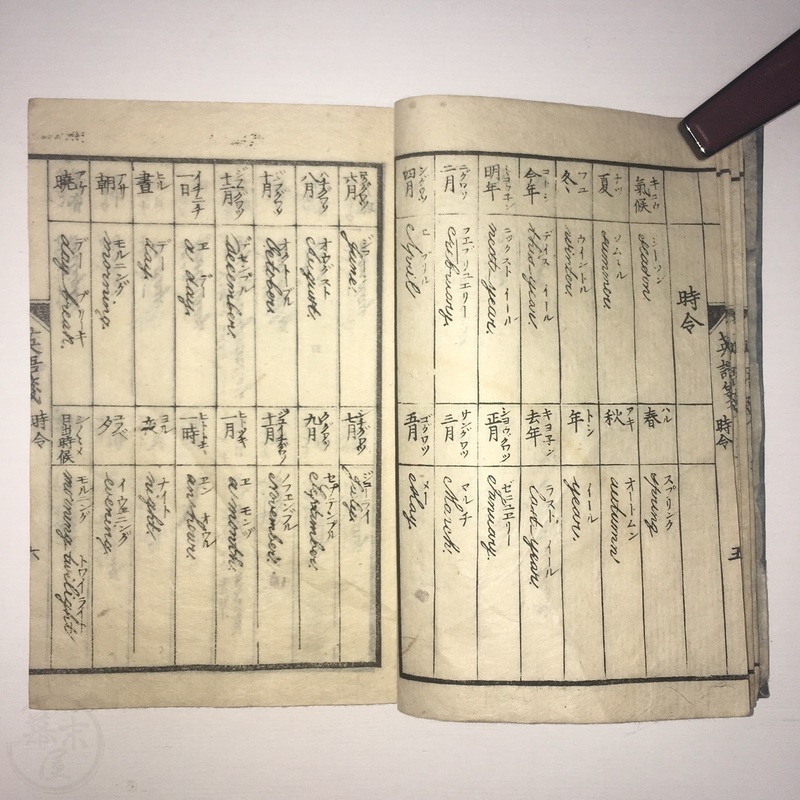 英語箋 時令
五
時令
キコウ
氣候
シーソン
season
ハル
春
スプリング
spring
ナツ
夏
ソムミル
summer
アキ
秋
オートムン
autumn
フユ
冬
ウイントル
winter
トシ
年
イール
year.
コトシ
今年
ヂイス イール
this year.
キヨ子ン
去年
ラスト イール
last year.
ミヨウ子ン
明年
ニックスト イール
next year.
シヨウグワツ
正月
ゼニユエリー
January.
ニグワツ
二月
フエブリユエリー
February.
サングワツ
三月
マルチ
March.
シグワツ
四月
エプリル
April
ゴグワツ
五月
メー
May.
ログワツ
六月
ジユーン
June.
シチグワツ
七月
July.
ハチグワツ
八月
オーガスト
August.
クグワツ
九月
セプテンブル
September.
ジフグワツ
十月
October.
十一月
ノフエンブル
November.
十二月
December.
ヒトツキ
一月
エ モンツ
a month.
イチニチ
一日
エ デー
a day.
一時
エン オウル
an hour.
ヒル
晝
デー
day.
ヨル
夜
ナイト
night.
アサ
朝
モルニング
morning.
夕
イヴェニング
evening.
アケ
曉
デー ブリーキ
day break.
シノヽメ
日出時候
モルニング トワイライト
morning twilight
英語箋 時令
六